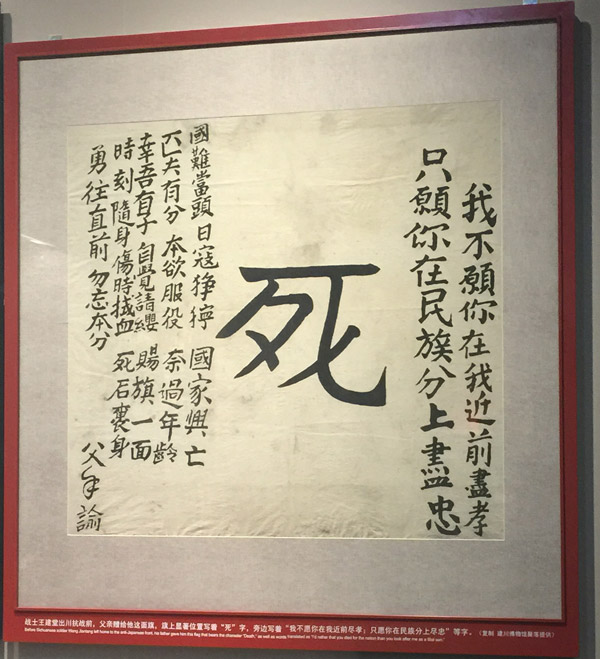 我不願你在我近前盡孝
只願你在民族分上盡忠
死
國難當頭 日寇猙獰 國家興亡
匹夫有分 本欲服役 奈過年齡
幸吾有子 自覺請纓 賜旗一面
時刻隨身 傷時拭血 死后裹身
勇往直前 勿忘本分
父手諭
战士王建堂出川抗战前，父亲赠给他这面旗，旗上显著位置写着“死”字，旁边写着“我不愿你在我近前尽孝；只愿你在民族分上尽忠”等字。（复制 建川博物馆聚落提供）
Before Sichuanese soldier Wang Jiantang left home to the anti-Japanese front, his father gave him this flag that bears the character "Death," as well as words translated as "I'd rather that you died for the nation than you look after me as a filial son".